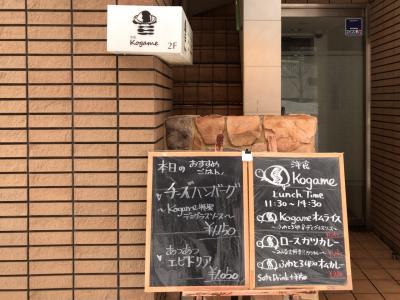 洋食
Kogame
2F
本日の おすすめ
ごはん
チーズハンバーグ
~Kogame特製
デミグラスソース~
¥1,150
あつあつ
エビドリア
¥1,050
洋食
Kogame
Lunch Time
11:30~14:30
Kogameオムライス
ロースカツカレー
ふわとろオムカレー
Soft Drink